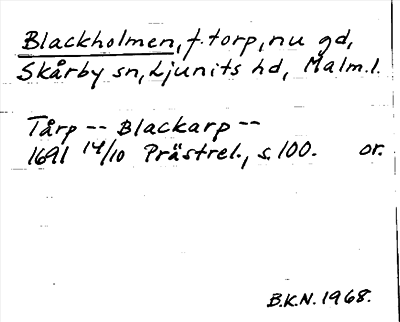 Blackholmen, f. torp, nu gd,
Skårby sn, Ljunits hd, Malm.l.
Tårp -- Blackarp --
1691 14/10 Prästrel., s. 100. or.
B.K.N. 1968.